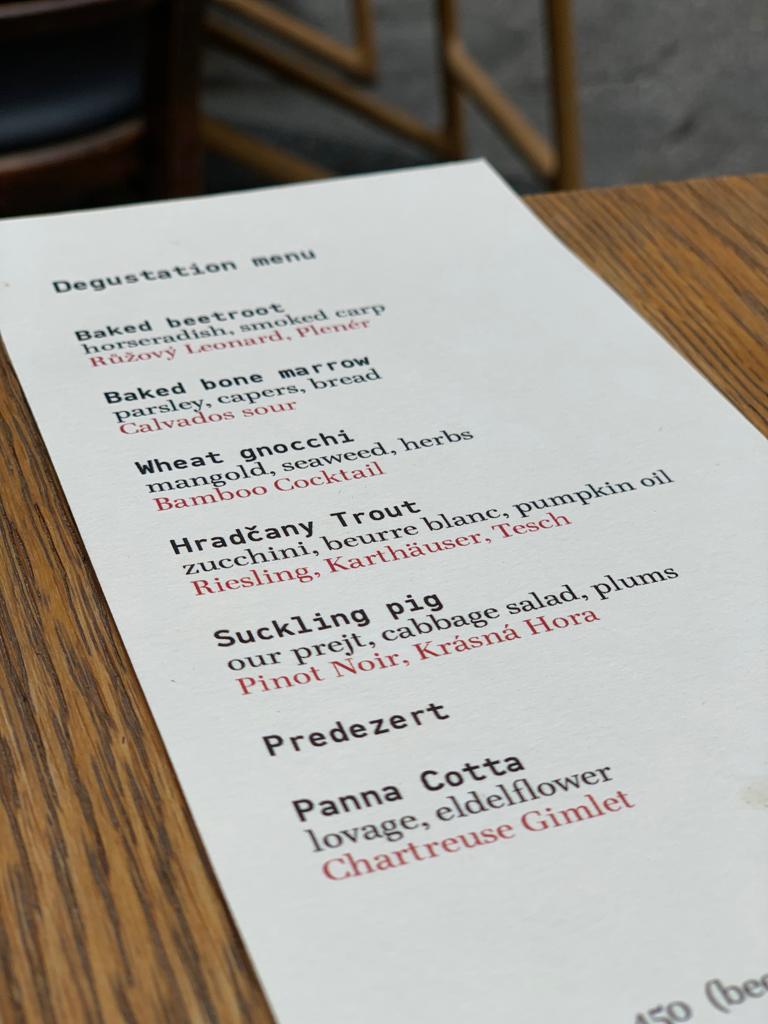 Degustation menu
Baked beetroot
horseradish, smoked carp
Růžový Leonard, Plenér
Baked bone marrow
parsley, capers, bread
Calvados sour
Wheat gnocchi
mangold, seaweed, herbs
Bamboo Cocktail
Hradčany Trout
zucchini, beurre blanc, pumpkin oil
Riesling, Karthäuser, Tesch
Suckling pig
our prejt, cabbage salad, plums
Pinot Noir, Krásná Hora
Predezert
Panna Cotta
lovage, eldelflower
Chartreuse Gimlet
450